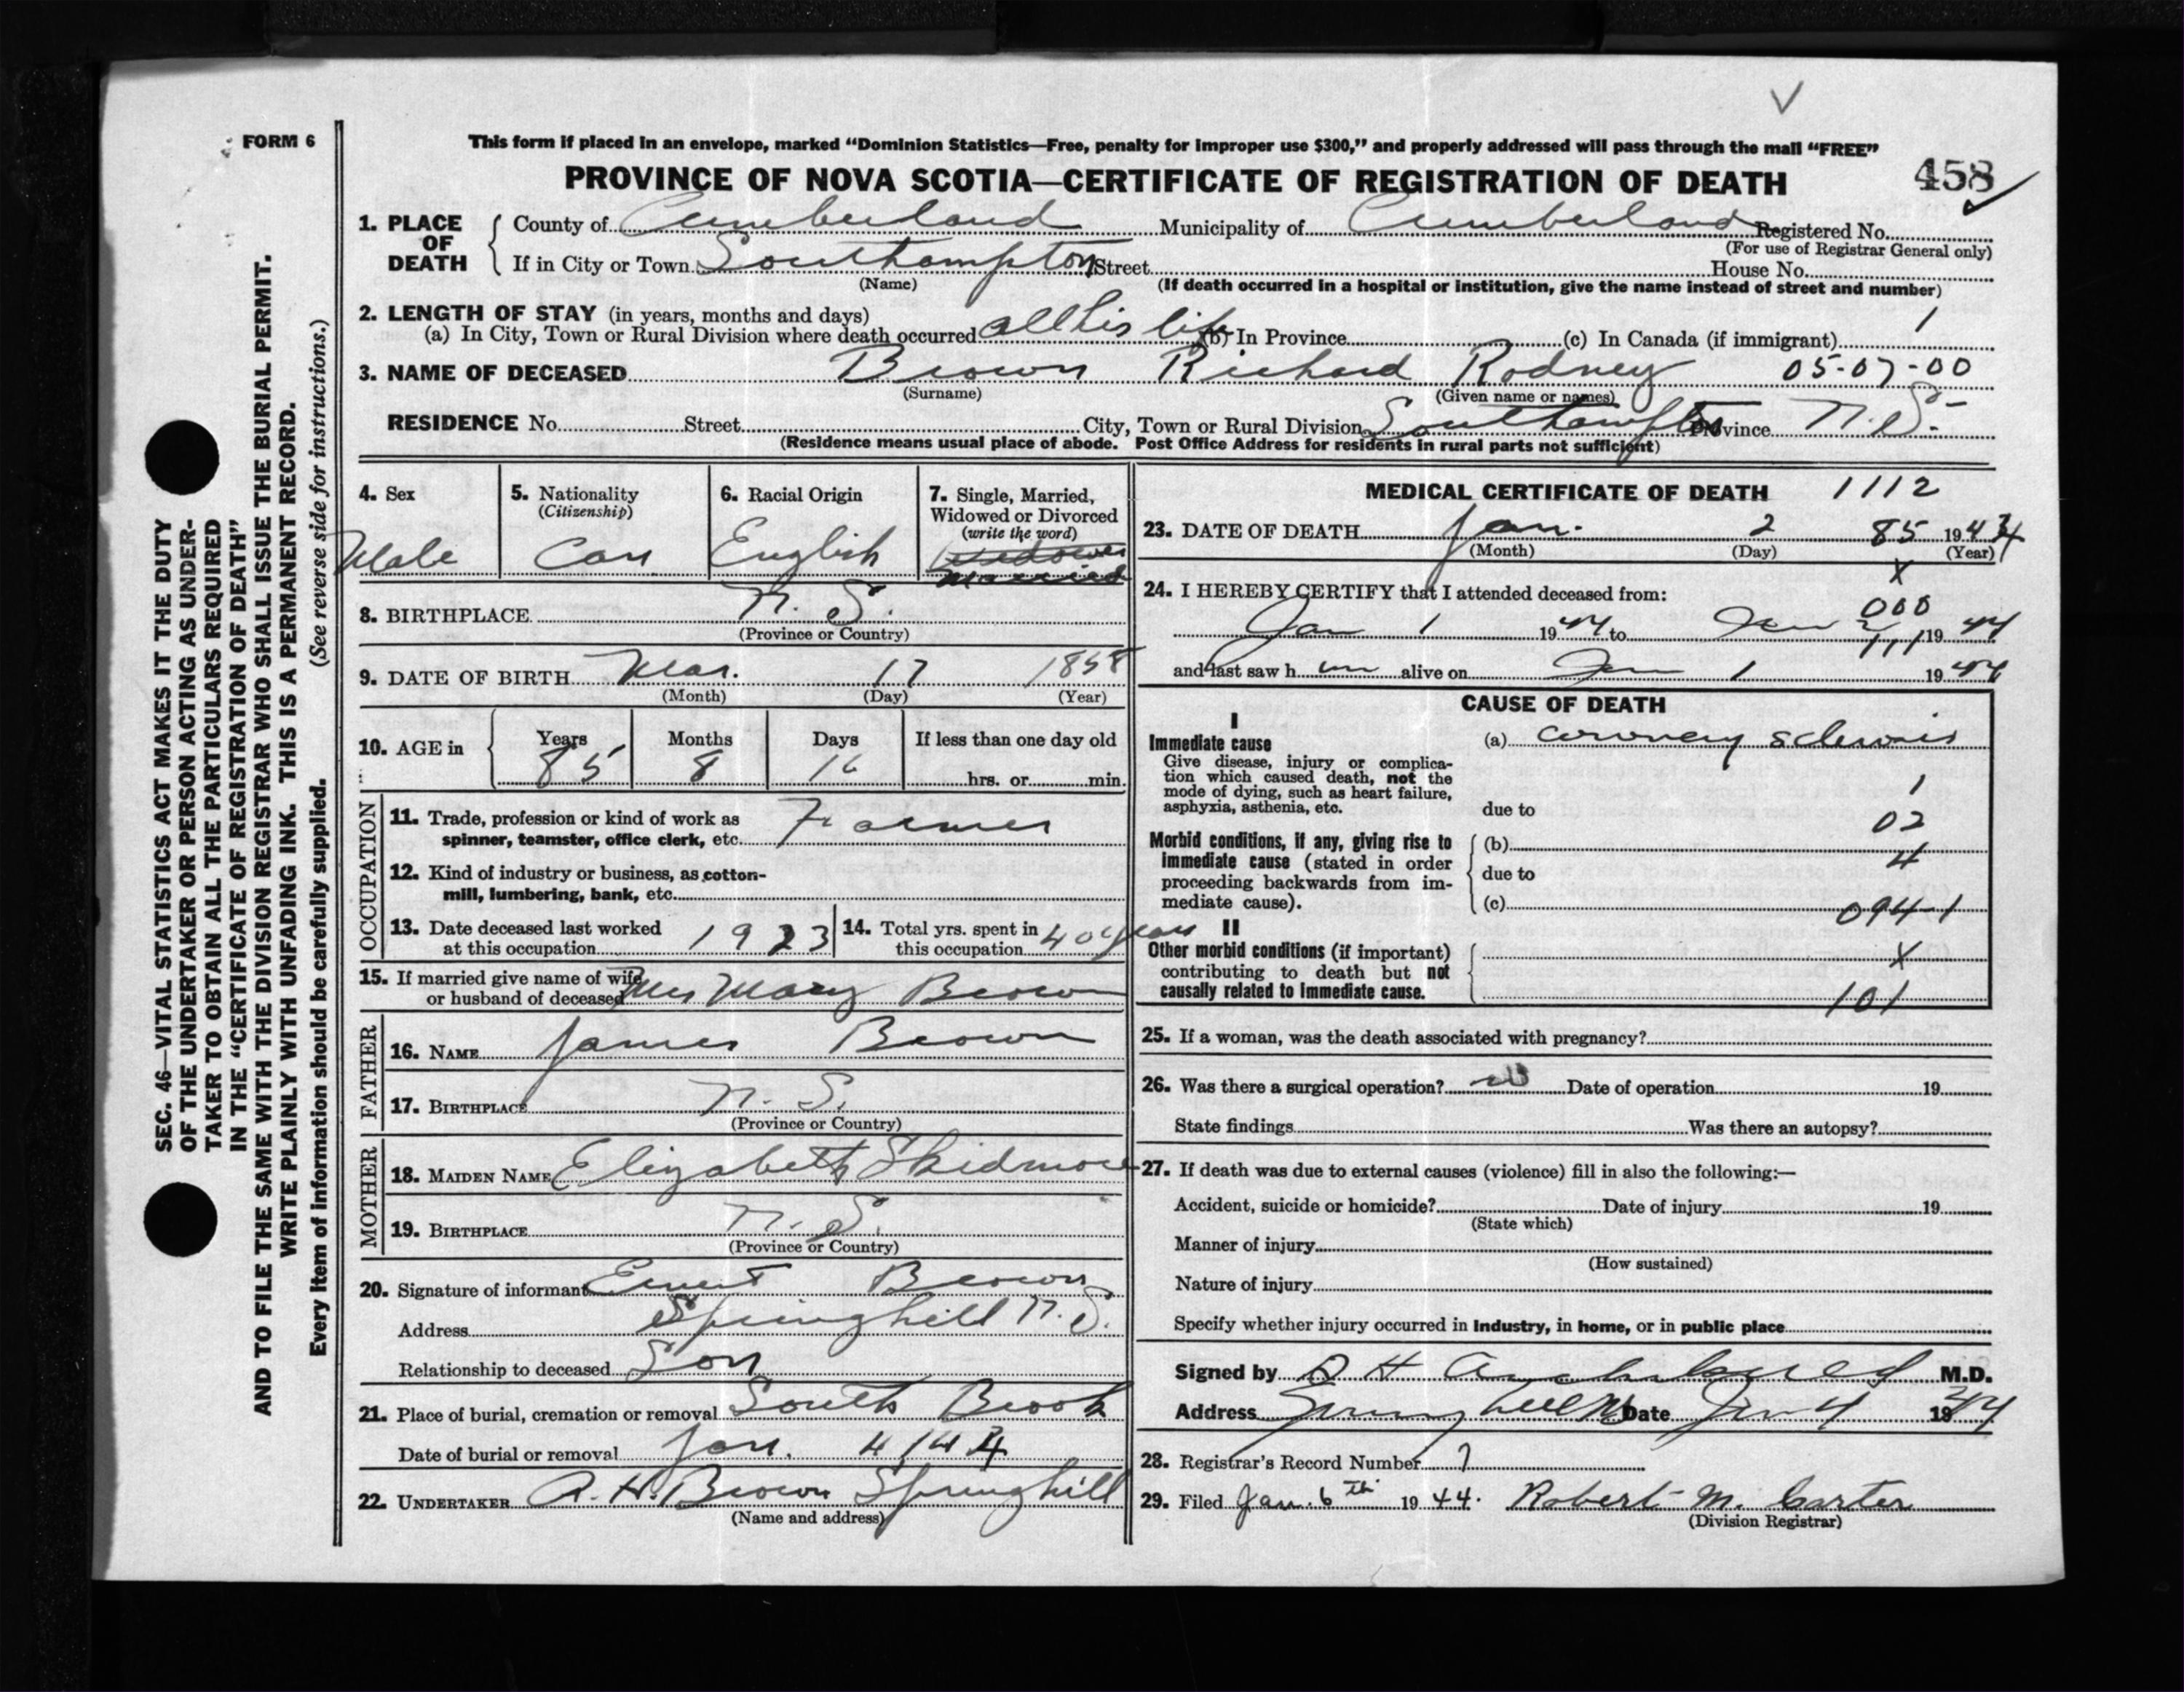 FORM 6
This form if placed in an envelope, marked “Dominion Statistics—Free, penalty for improper use $300,” and properly addressed will pass through the mail “FREE”
PROVINCE OF NOVA SCOTIA—CERTIFICATE OF REGISTRATION OF DEATH
458
1. PLACE OF DEATH
County of Cumberland Municipality of Cumberland Registered No.
(For use of Registrar General only)
If in City or Town Southampton Street House No.
(Name) (If death occurred in a hospital or institution, give the name instead of street and number)
2. LENGTH OF STAY (in years, months and days)
(a) In City, Town or Rural Division where death occurred all his life (b) In Province (c) In Canada (if immigrant) 1
3. NAME OF DECEASED Brown Richard Rodney 05-07-00
(Surname) (Given name or names)
RESIDENCE No. Street City, Town or Rural Division Southampton Province N.S.
(Residence means usual place of abode. Post Office Address for residents in rural parts not sufficient)
4. Sex
Male
5. Nationality
(Citizenship)
Can
6. Racial Origin
English
7. Single, Married,
Widowed or Divorced
(write the word)
Widower
Married
8. BIRTHPLACE N. S.
(Province or Country)
9. DATE OF BIRTH Mar. 17 1858
(Month) (Day) (Year)
10. AGE in
Years Months Days If less than one day old
85 8 16 hrs. or min.
OCCUPATION
11. Trade, profession or kind of work as
spinner, teamster, office clerk, etc. Farmer
12. Kind of industry or business, as cotton-
mill, lumbering, bank, etc.
13. Date deceased last worked
at this occupation 1923
14. Total yrs. spent in
this occupation 40 years
15. If married give name of wife
or husband of deceased Mrs Mary Brown
FATHER
16. NAME James Brown
17. BIRTHPLACE N. S.
(Province or Country)
MOTHER
18. MAIDEN NAME Elizabeth Skidmore
19. BIRTHPLACE N. S.
(Province or Country)
20. Signature of informant Ernest Brown
Address Springhill N.S.
Relationship to deceased Son
21. Place of burial, cremation or removal South Brook
Date of burial or removal Jan. 4 1944
22. UNDERTAKER A. H. Brown Springhill
(Name and address)
MEDICAL CERTIFICATE OF DEATH 1112
23. DATE OF DEATH Jan. 2 85 1944
(Month) (Day) (Year)
X
24. I HEREBY CERTIFY that I attended deceased from:
000
Jan 1 1944 to Jan 2 1944
111
and last saw h im alive on Jan 1 1944
CAUSE OF DEATH
I
Immediate cause
Give disease, injury or complica-
tion which caused death, not the
mode of dying, such as heart failure,
asphyxia, asthenia, etc.
(a) coronary sclerosis
1
due to
02
Morbid conditions, if any, giving rise to
immediate cause (stated in order
proceeding backwards from im-
mediate cause).
(b)
4
due to
(c) 094-1
II
Other morbid conditions (if important)
contributing to death but not
causally related to immediate cause.
X
101
25. If a woman, was the death associated with pregnancy?
26. Was there a surgical operation? no Date of operation 19
State findings Was there an autopsy?
27. If death was due to external causes (violence) fill in also the following:—
Accident, suicide or homicide? Date of injury 19
(State which)
Manner of injury
(How sustained)
Nature of injury
Specify whether injury occurred in industry, in home, or in public place
Signed by H M.D.
Address Springhill NS Date Jan 4 1944
28. Registrar's Record Number 1
29. Filed Jan. 6th 1944. Robert M. Carter
(Division Registrar)
SEC. 46—VITAL STATISTICS ACT MAKES IT THE DUTY
OF THE UNDERTAKER OR PERSON ACTING AS UNDER-
TAKER TO OBTAIN ALL THE PARTICULARS REQUIRED
IN THE “CERTIFICATE OF REGISTRATION OF DEATH”
AND TO FILE THE SAME WITH THE DIVISION REGISTRAR WHO SHALL ISSUE THE BURIAL PERMIT.
WRITE PLAINLY WITH UNFADING INK. THIS IS A PERMANENT RECORD.
Every item of information should be carefully supplied. (See reverse side for instructions.)